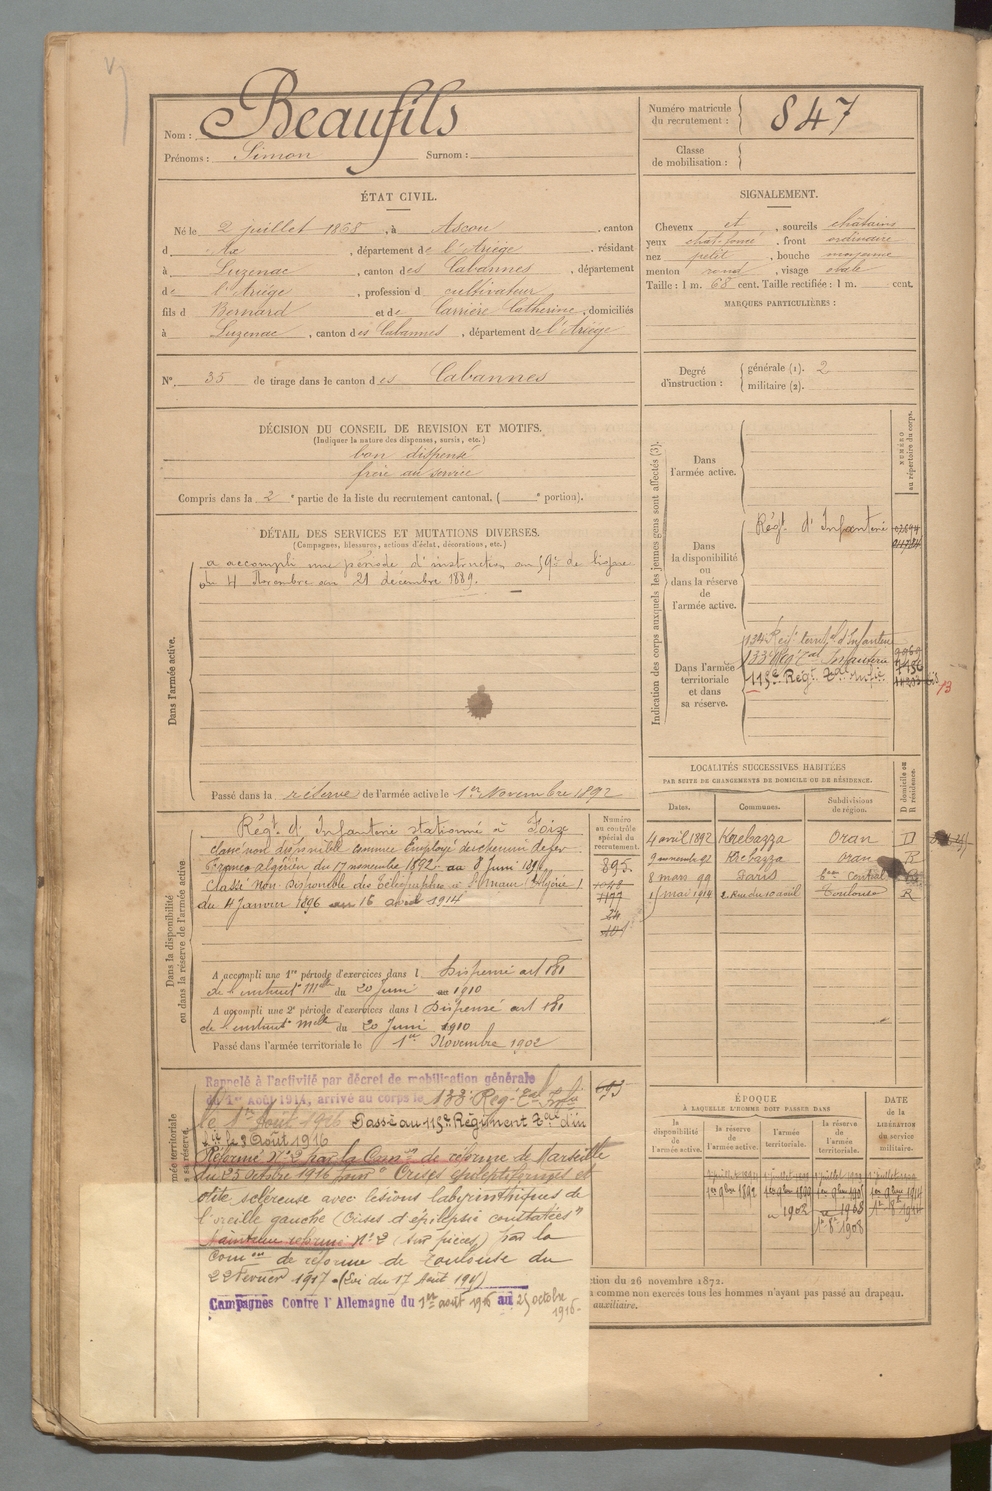 Nom : Beaufils
Prénoms : Simon Surnom :
Numéro matricule
du recrutement : 847
Classe
de mobilisation :
ÉTAT CIVIL.
Né le 2 juillet 1868, à Ascou, canton
d Ax, département de l'Ariège, résidant
à Luzenac, canton des Cabannes, département
de l'Ariège, profession d cultivateur
fils d Bernard et de Carrière Catherine, domiciliés
à Luzenac, canton des Cabannes, département de l'Ariège
N° 35 de tirage dans le canton des Cabannes
SIGNALEMENT.
Cheveux et, sourcils châtains
yeux chat. foncé, front ordinaire
nez petit, bouche moyenne
menton rond, visage ovale
Taille : 1 m. 68 cent. Taille rectifiée : 1 m. cent.
MARQUES PARTICULIÈRES :
Degré
d'instruction :
générale (1). 2
militaire (2).
DÉCISION DU CONSEIL DE REVISION ET MOTIFS.
(Indiquer la nature des dispenses, sursis, etc.)
bon dispensé
frère au service
Compris dans la 2e partie de la liste du recrutement cantonal. ( e portion).
DÉTAIL DES SERVICES ET MUTATIONS DIVERSES.
(Campagnes, blessures, actions d'éclat, décorations, etc.)
Dans l'armée active.
a accompli une période d'instruction au 59e de ligne
du 4 Novembre au 21 décembre 1889.
Passé dans la réserve de l'armée active le 1er Novembre 1892
Indication des corps auxquels les jeunes gens sont affectés (3).
NUMÉRO
au répertoire du corps.
Dans
l'armée active.
Dans
la disponibilité
ou
dans la réserve
de
l'armée active.
Régt d'Infanterie
Dans l'armée
territoriale
et dans
sa réserve.
134 Régt territal d'Infanterie
133e Régt tal Infanterie
115e Régt tal Infie
13
LOCALITÉS SUCCESSIVES HABITÉES
PAR SUITE DE CHANGEMENTS DE DOMICILE OU DE RÉSIDENCE.
Dates. Communes. Subdivisions
de région.
D domicile ou
R résidence.
4 avril 1892 Krebazza Oran D
9 novembre 92 Krebazza Oran R
8 mars 99 Paris Central R
1 mai 1914 2. Rue du 10 avril Toulouse R
Dans la disponibilité
ou dans la réserve de l'armée active
Numéro
au contrôle
spécial du
recrutement.
Régt d'Infanterie stationné à Foix
classé non disponible comme Employé des chemin de fer
Franco algérien du 17 novembre 1892 au 8 Juin 1894
Classé non disponible des Télégraphes à (Algérie)
du 4 Janvier 1896 au 16 avril 1914
895
1048
1177
A accompli une 1re période d'exercices dans l Dispensé art 181
de l'instruct Mlle du 20 Juin 1910
A accompli une 2e période d'exercices dans l Dispensé art 181
de l'instruct Mlle du 20 Juin 1910
Passé dans l'armée territoriale le 1er Novembre 1902
Rappelé à l'activité par décret de mobilisation générale
du 1er Août 1914, arrivé au corps le 133e Régt tal Infie
le 1er Août 1916 Passé au 115e Régiment tal d'in
fie le 3 Août 1916
Réformé N° 2 par la Comon de réforme de Marseille
du 25 Octobre 1916 pour Crises épileptiformes et
otite scléreuse avec lésions labyrinthiques de
l'oreille gauche (Crises d'épilepsie constatées"
Maintenu réformé N° 2 (sur pièces) par la
Comon de réforme de Toulouse du
22 Février 1917. (Loi du 17 Août 1917)
Campagnes Contre l'Allemagne du 1er août 1916 au 25 octobre
1916-
ÉPOQUE
À LAQUELLE L'HOMME DOIT PASSER DANS
DATE
de la
LIBÉRATION
du service
militaire.
la
disponibilité de
l'armée active.
la réserve
de
l'armée active.
l'armée
territoriale.
la réserve
de
l'armée
territoriale.
1er 9bre 1892
1902
1908
1er 8bre 1908
ction du 26 novembre 1872.
a comme non exercés tous les hommes n'ayant pas passé au drapeau.
auxiliaire.